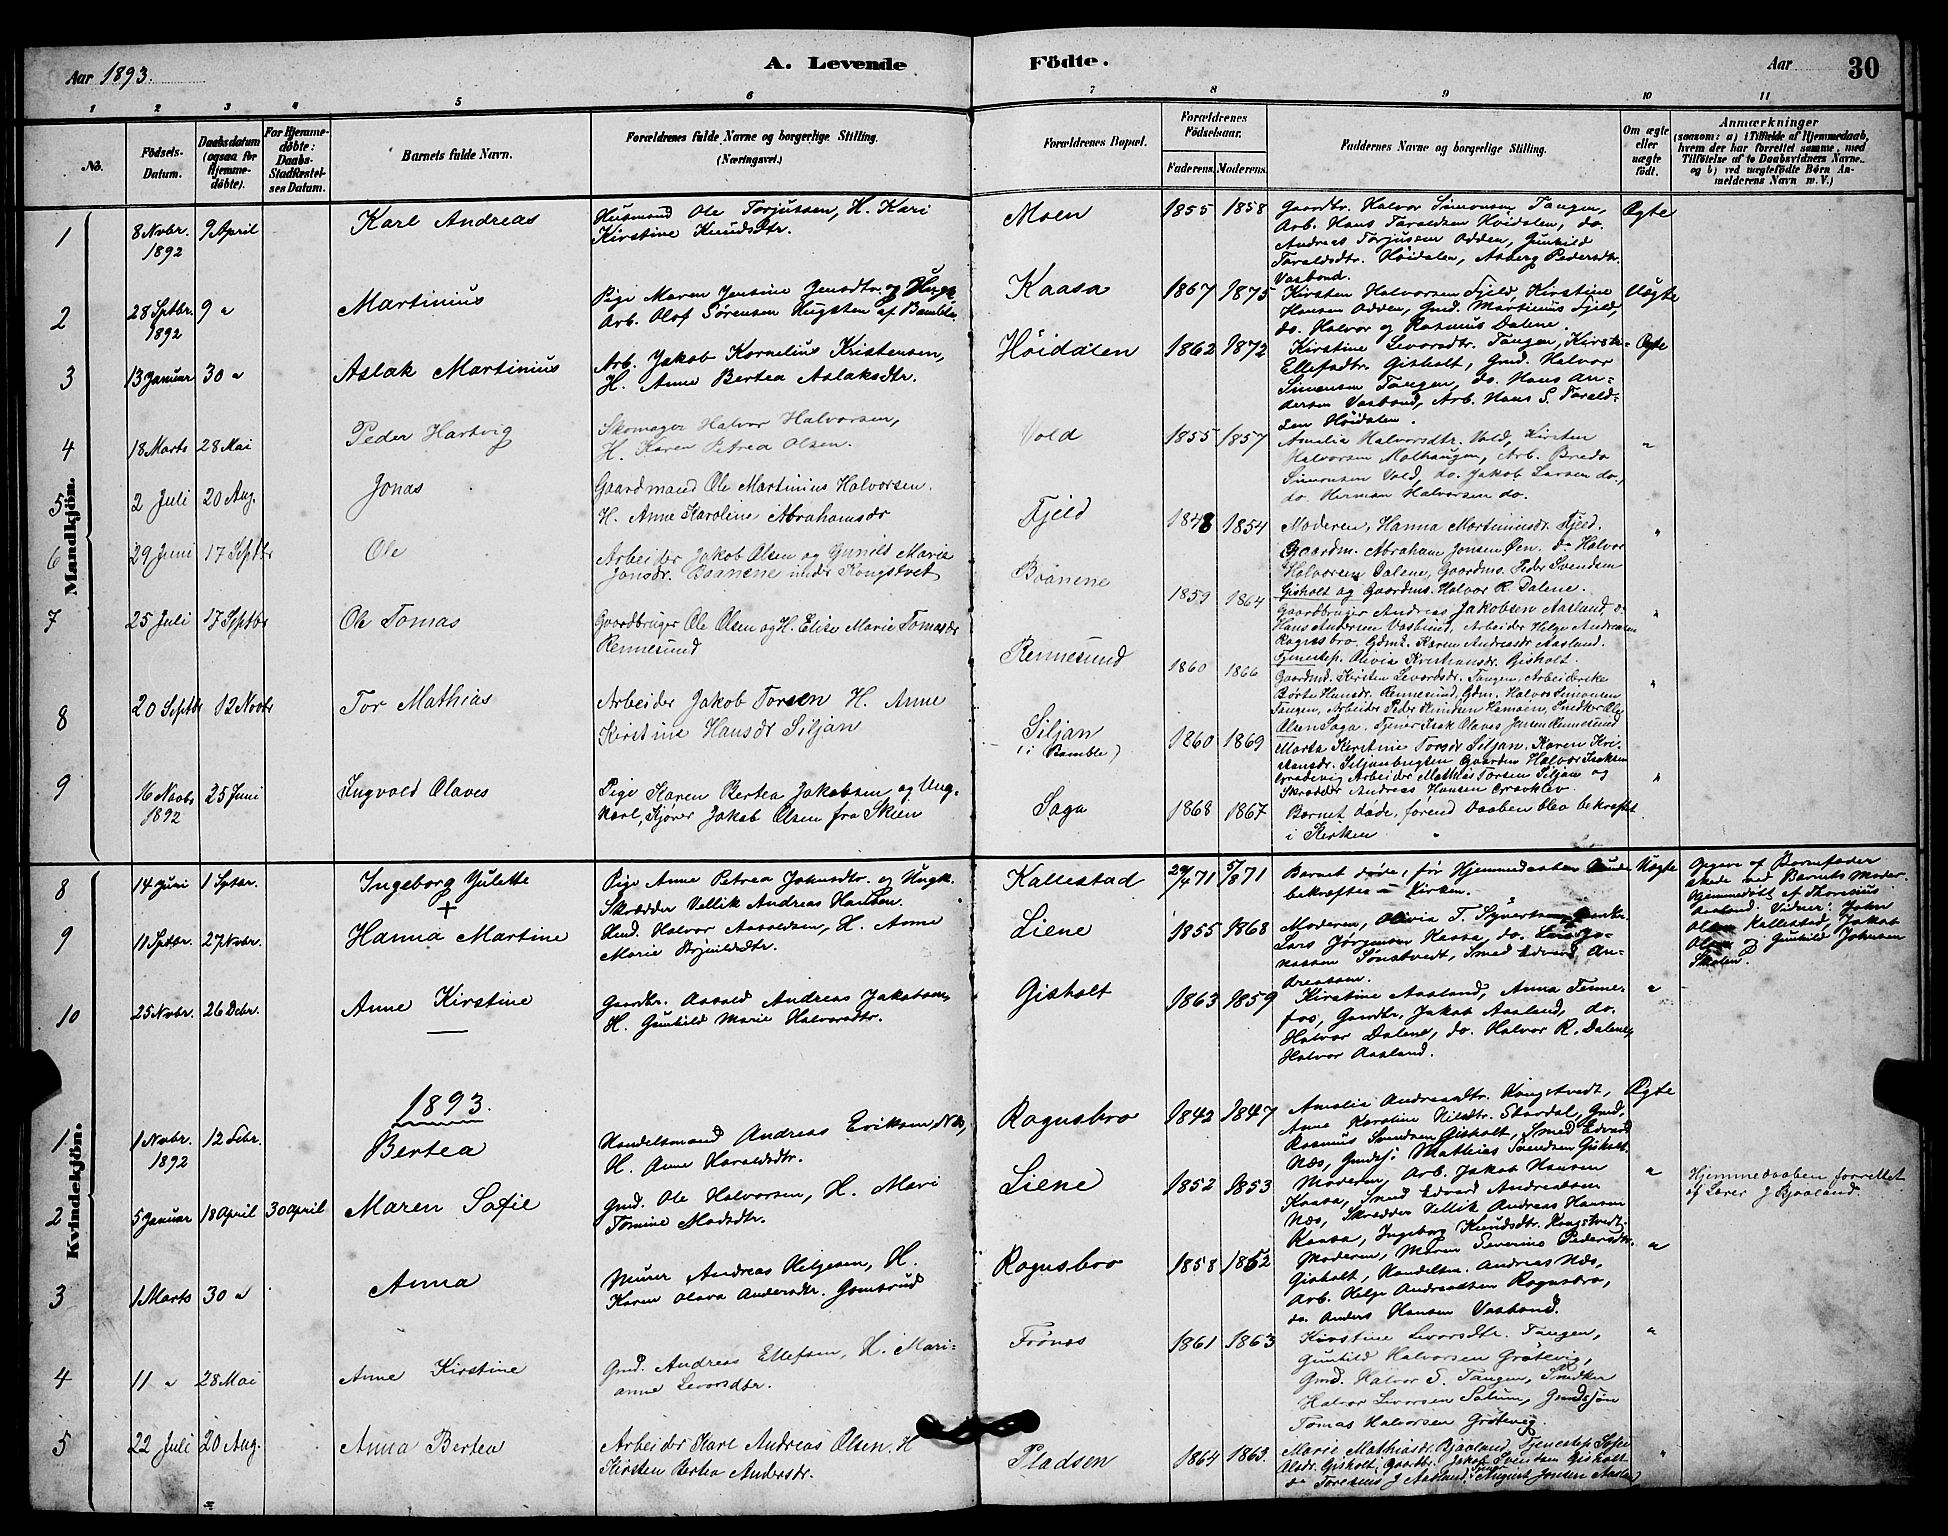 Aar 1893.
A. Levende
Födte.
Aar
30
1 2 3 4 5 6 7 8 9 10 11
No.
Födsels-Datum.
Daabsdatum (ogsaa for Hjemme-döbte).
For Hjemme-döbte: Daabs-Stadfæstel-ses Datum.
Barnets fulde Navn.
Forældrenes fulde Navne og borgerlige Stilling. (Næringsvei.)
Forældrenes Bopæl.
Forældrenes Födselsaar.
Faderens. Moderens.
Faddernes Navne og borgerlige Stilling.
Om ægte eller uægte födt.
Anmærkninger
(saasom: a) i Tilfælde af Hjemmedaab, hvem der har forrettet samme, med Tilföielse af to Daabsvidners Navne, og b) ved uægtefödte Börn An-melderens Navn m. V.)
Mandkjön.
1 8 Novbr. 1892 9 April Karl Andreas
Husmand Ole Torjussen, H. Kari
Kirstine Knudsdtr.
Moen 1855 1858
Gaardbr. Halvor Simonsen Tangen,
Arb. Hans Taraldsen Höidalen, do.
Andreas Torjussen Odden, Gunhild
Taraldsdtr. Höidalen, Asberg Pedersdtr.
Vasbond.
Ægte
2 28 Sptbr. 1892 9 " Martinius
Pige Maren Jensine Jensdtr. og Ungk.
Arb. Olof Sörensen Hugsten af Bamble.
Kaasa 1867 1875
Kirsten Halvorsen Fjeld, Kirstine
Hansen Odden, Gmd. Martinius Fjeld,
do. Halvor og Rasmus Dalene.
Uægte
3 13 Januar 30 " Aslak Martinius
Arb. Jakob Kornelius Kristensen,
H. Anne Bertea Aslaksdtr.
Höidalen 1862 1872
Kirstine Levorsdtr. Tangen, Kirst.
Ellefsdtr. Gisholt, Gmd. Halvor
Simonsen Tangen, do. Hans An-
dersen Vasbond, Arb. Hans S. Tarald-
sen Höidalen.
Ægte
4 18 Marts 28 Mai Peder Hartvig
Skomager Halvor Halvorsen,
H. Karen Petrea Olsen.
Vold 1855 1857
Amalia Halvorsdtr. Vold, Kirsten
Halvorsen Molhaugen, Arb. Brede
Simonsen Vold, do. Jakob Larsen do.,
do. Herman Halvorsen do.
"
5 2 Juli 20 Aug. Jonas
Gaardmand Ole Martinius Halvorsen.
H. Anne Karoline Abrahamsdr
Fjeld 1848 1854
Moderen, Hanna Martinusdr. Fjeld.
Gaardm. Abraham Jonsen Öen. do Halvor
Halvorsen Dalene, Gaardms. Peder Svendsen
Gisholt og Gaardms. Halvor R. Dalene.
"
6 29 Juni 17 Septbr Ole
Arbeider Jakob Olsen og Gunild Maria
Jonsdr. Braanene under Kongstvet
Braanene 1859 1864
Gaardbruger Andreas Jakobsen Aasland, do
Hans Andersen Vasbund, Arbeider Helge Andreasen
Ragnsbro, Gdmd. Karen Andreasdr Aasland.
Tjenestep. Olivia Kristiansdr. Gisholt.
"
7 25 Juli 17 Septbr Ole Tomas
Gaardbruger Ole Olsen og H. Elise Marie Tomasdr
Rennesund
Rennesund 1860 1866
Gaardmd. Kirsten Levordsdr. Tangen, Arbeiderske
Börte Hansdr. Rennesund, Gdm. Halvor Simonsen
Tangen, Arbeider Peder Knudsen, Snedker Ole
Olsen Saga. Tjener Isak Olaves Jansen Rennesund
"
8 20 Septbr 12 Novbr Tor Mathias
Arbeider Jakob Torsen H. Anne
Kirstine Hansdr Siljan
Siljan (i Bamble) 1860 1869
Marta Kirstine Torsdr Siljan, Karen Kri-
stansdr. Siljan Gaardm Halvor Isaksen
Arbeider Mathias Torsen Siljan og
Skrædder Andreas Hansen Gravklev.
"
9 16 Novbr 1892 25 Juni Ingvald Olaves
Pige Karen Bertea Jakobsen og Ung-
karl, Kjörer Jakob Olsen fra Skien
Saga 1868 1867
Barnet döde, förend Daaben blev bekræftet
i Kirken
"
Kvindekjön.
8 14 Juni 1 Sptbr. Ingeborg Julette +
Pige Anne Petrea Johnsdtr. og Ungk.
Skrædder Vellik Andreas Hansen.
Kallestad 29/4 71 5/8 71
Barnet döde, för Hjemmedaaben kunde
bekræftes i Kirken.
Uægte
Opgave af Barnefader
skede ved Barnets Moder.
Hjemmedöbt af Thorvius
Aasland. Vidner: John
Olsen Kallestad, Jakob
Olsen og Gunhild Johnsen
Skolen.
9 11 Sptbr. 27 Novbr. Hanna Martine
Gmd. Halvor Aasoldsen, H. Anne
Marie Brynildsdtr.
Liene 1855 1868
Moderen, Olivia T. Syvertsen, Gaardbr.
Lars Jörgensen Kaasa, do. Lars Jo-
nassen Sönstvedt, Smed Edvard An-
dreassen.
10 25 Novbr. 26 Debr. Anne Kirstine
Gaardbr. Aasold Andreas Jakobsen,
H. Gunhild Marie Halvorsdtr.
Gisholt 1863 1859
Kirstine Aasland, Anna Tenne-
fos, Gaardbr. Jakob Aasland, do.
Halvor Dalene, do. Halvor R. Dalene,
Halvor Aasland.
"
1893.
1 1 Novbr. 1892 12 Febr. Bertea
Handelsmand Andreas Eriksen Næs,
H. Anne Haraldsdtr.
Ragnsbro 1842 1847
Amalie Andreasdtr. Kongstvedt,
Anne Karoline Nilsdtr. Stordal, Gmd.
Rasmus Svendsen Gisholt, Smed Edvard
Næs, Gmdsj. Mathias Svendsen Gisholt.
Ægte
2 5 Januar 18 April 30 April Maren Sofie
Gmd. Ole Halvorsen, H. Mari
Tomine Madsdtr.
Liene 1852 1853
Moderen, Arb. Jakob Hansen
Kaasa, Smed Edvard Andreassen
Næs, Skrædder Vellik Andreas Hansen
Kaasa, Ingeborg Knudsdtr. Kongstvedt.
"
Hjemmedaaben forrettet
af Lærer J Bjaaland.
3 1 Marts 30 " Anna
Murer Andreas Helgesen, H.
Karen Olava Andersdtr. Gomsrud
Ragnsbro 1858 1862
Moderen, Maren Severine Pedersdtr.
Gisholt, Handelsm. Andreas Næs,
Arb. Helge Andreassen Ragnsbro,
do. Anders Hansen Vasbond.
"
4 11 " 28 Mai Anne Kirstine
Gmd. Andreas Ellefsen, H. Mari-
anne Levorsdtr.
Frönæs 1861 1863
Kirstine Levorsdtr. Tangen,
Gunhild Halvorsen Grötevig,
Gmd. Halvor S. Tangen, Snedker
Halvor Levorsen Solum, Gmdssön
Tomas Halvorsen Grötevig.
"
5 22 Juli 20 Aug. Anna Bertea
Arbeider Karl Andreas Olsen. H
Kirsten Bertea Andersdr.
Pladsen 1864 1863.
Marie Mathiasdr. Bjaaland, Tjenestep. Sofie
Olsdr. Gisholt, Gaardbr. Jakob Svendsen Gisholt
do Toresius J Aasland. Tjener August Jonsen Aasland
"